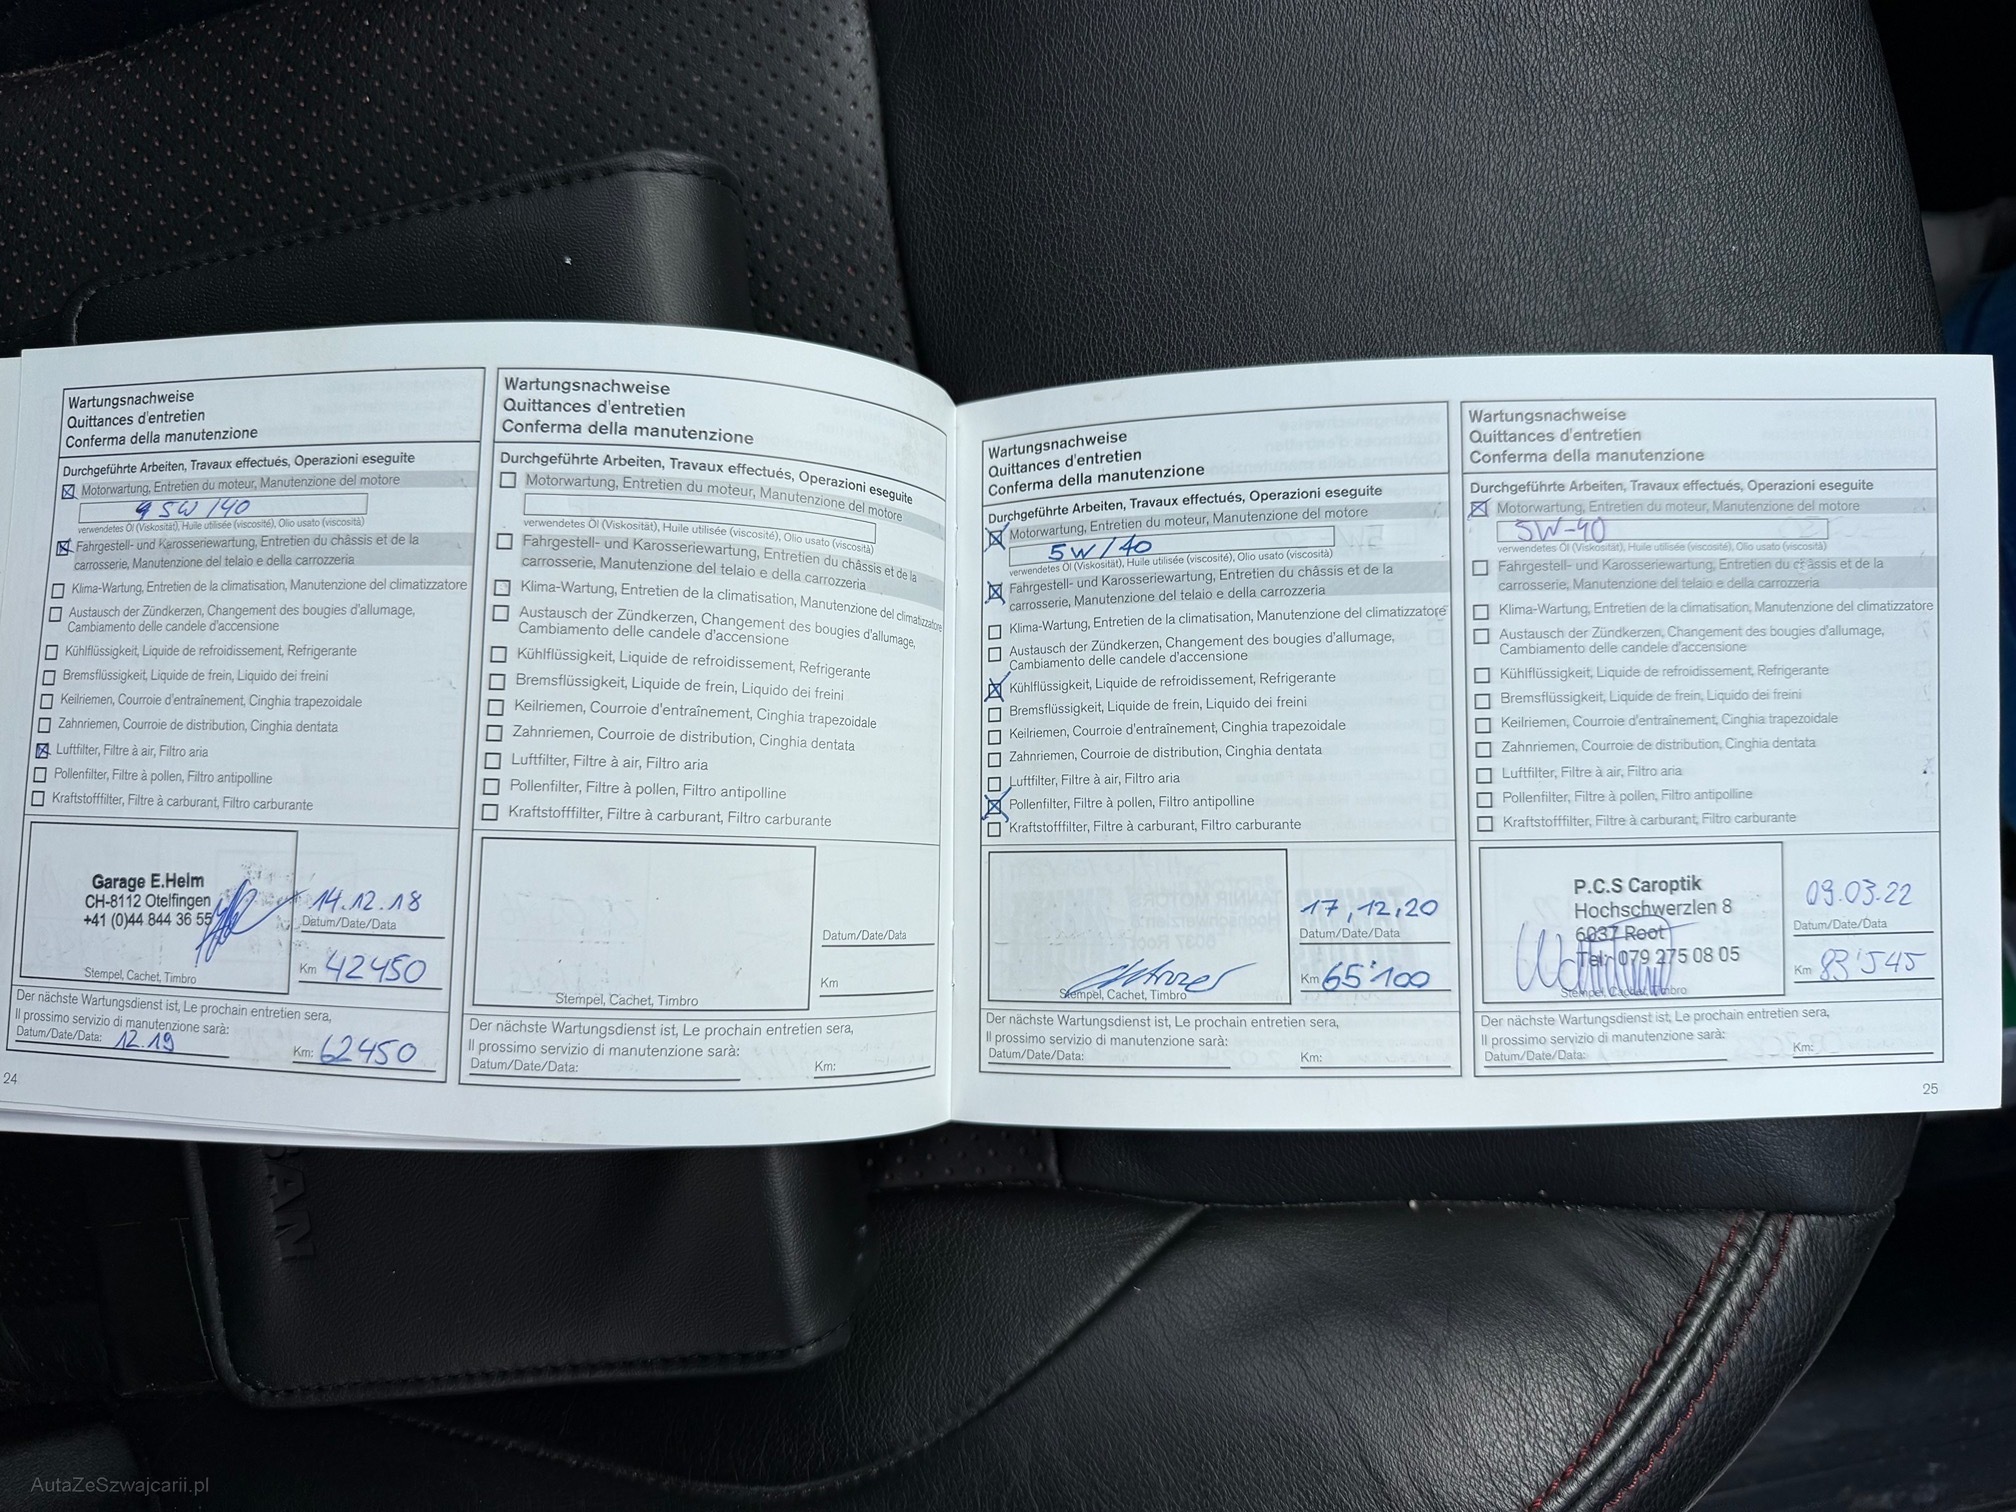 Wartungsnachweise
Quittances d'entretien
Conferma della manutenzione
Durchgeführte Arbeiten, Travaux effectués, Operazioni eseguite
Motorwartung, Entretien du moteur, Manutenzione del motore
5W/40
verwendetes Öl (Viskosität), Huile utilisée (viscosité), Olio usato (viscosità)
Fahrgestell- und Karosseriewartung, Entretien du châssis et de la
carrosserie, Manutenzione del telaio e della carrozzeria
Klima-Wartung, Entretien de la climatisation, Manutenzione del climatizzatore
Austausch der Zündkerzen, Changement des bougies d'allumage,
Cambiamento delle candele d'accensione
Kühlflüssigkeit, Liquide de refroidissement, Refrigerante
Bremsflüssigkeit, Liquide de frein, Liquido dei freini
Keilriemen, Courroie d'entraînement, Cinghia trapezoidale
Zahnriemen, Courroie de distribution, Cinghia dentata
Luftfilter, Filtre à air, Filtro aria
Pollenfilter, Filtre à pollen, Filtro antipolline
Kraftstofffilter, Filtre à carburant, Filtro carburante
Garage E.Helm
CH-8112 Otelfingen
+41 (0)44 844 36 55
Stempel, Cachet, Timbro
14.12.18
Datum/Date/Data
Km 42450
Der nächste Wartungsdienst ist, Le prochain entretien sera,
Il prossimo servizio di manutenzione sarà:
Datum/Date/Data: 12.19 Km: 62450
24
Wartungsnachweise
Quittances d'entretien
Conferma della manutenzione
Durchgeführte Arbeiten, Travaux effectués, Operazioni eseguite
Motorwartung, Entretien du moteur, Manutenzione del motore
verwendetes Öl (Viskosität), Huile utilisée (viscosité), Olio usato (viscosità)
Fahrgestell- und Karosseriewartung, Entretien du châssis et de la
carrosserie, Manutenzione del telaio e della carrozzeria
Klima-Wartung, Entretien de la climatisation, Manutenzione del climatizzatore
Austausch der Zündkerzen, Changement des bougies d'allumage,
Cambiamento delle candele d'accensione
Kühlflüssigkeit, Liquide de refroidissement, Refrigerante
Bremsflüssigkeit, Liquide de frein, Liquido dei freini
Keilriemen, Courroie d'entraînement, Cinghia trapezoidale
Zahnriemen, Courroie de distribution, Cinghia dentata
Luftfilter, Filtre à air, Filtro aria
Pollenfilter, Filtre à pollen, Filtro antipolline
Kraftstofffilter, Filtre à carburant, Filtro carburante
Stempel, Cachet, Timbro
Datum/Date/Data
Km
Der nächste Wartungsdienst ist, Le prochain entretien sera,
Il prossimo servizio di manutenzione sarà:
Datum/Date/Data: Km:
Wartungsnachweise
Quittances d'entretien
Conferma della manutenzione
Durchgeführte Arbeiten, Travaux effectués, Operazioni eseguite
Motorwartung, Entretien du moteur, Manutenzione del motore
5W/40
verwendetes Öl (Viskosität), Huile utilisée (viscosité), Olio usato (viscosità)
Fahrgestell- und Karosseriewartung, Entretien du châssis et de la
carrosserie, Manutenzione del telaio e della carrozzeria
Klima-Wartung, Entretien de la climatisation, Manutenzione del climatizzatore
Austausch der Zündkerzen, Changement des bougies d'allumage,
Cambiamento delle candele d'accensione
Kühlflüssigkeit, Liquide de refroidissement, Refrigerante
Bremsflüssigkeit, Liquide de frein, Liquido dei freini
Keilriemen, Courroie d'entraînement, Cinghia trapezoidale
Zahnriemen, Courroie de distribution, Cinghia dentata
Luftfilter, Filtre à air, Filtro aria
Pollenfilter, Filtre à pollen, Filtro antipolline
Kraftstofffilter, Filtre à carburant, Filtro carburante
Stempel, Cachet, Timbro
17,12,20
Datum/Date/Data
Km 65'100
Der nächste Wartungsdienst ist, Le prochain entretien sera,
Il prossimo servizio di manutenzione sarà:
Datum/Date/Data: Km:
Wartungsnachweise
Quittances d'entretien
Conferma della manutenzione
Durchgeführte Arbeiten, Travaux effectués, Operazioni eseguite
Motorwartung, Entretien du moteur, Manutenzione del motore
5W-40
verwendetes Öl (Viskosität), Huile utilisée (viscosité), Olio usato (viscosità)
Fahrgestell- und Karosseriewartung, Entretien du châssis et de la
carrosserie, Manutenzione del telaio e della carrozzeria
Klima-Wartung, Entretien de la climatisation, Manutenzione del climatizzatore
Austausch der Zündkerzen, Changement des bougies d'allumage,
Cambiamento delle candele d'accensione
Kühlflüssigkeit, Liquide de refroidissement, Refrigerante
Bremsflüssigkeit, Liquide de frein, Liquido dei freini
Keilriemen, Courroie d'entraînement, Cinghia trapezoidale
Zahnriemen, Courroie de distribution, Cinghia dentata
Luftfilter, Filtre à air, Filtro aria
Pollenfilter, Filtre à pollen, Filtro antipolline
Kraftstofffilter, Filtre à carburant, Filtro carburante
P.C.S Caroptik
Hochschwerzlen 8
6037 Root
Tel: 079 275 08 05
Stempel, Cachet, Timbro
09.03.22
Datum/Date/Data
Km 83'545
Der nächste Wartungsdienst ist, Le prochain entretien sera,
Il prossimo servizio di manutenzione sarà:
Datum/Date/Data: Km:
25
AutaZeSzwajcarii.pl